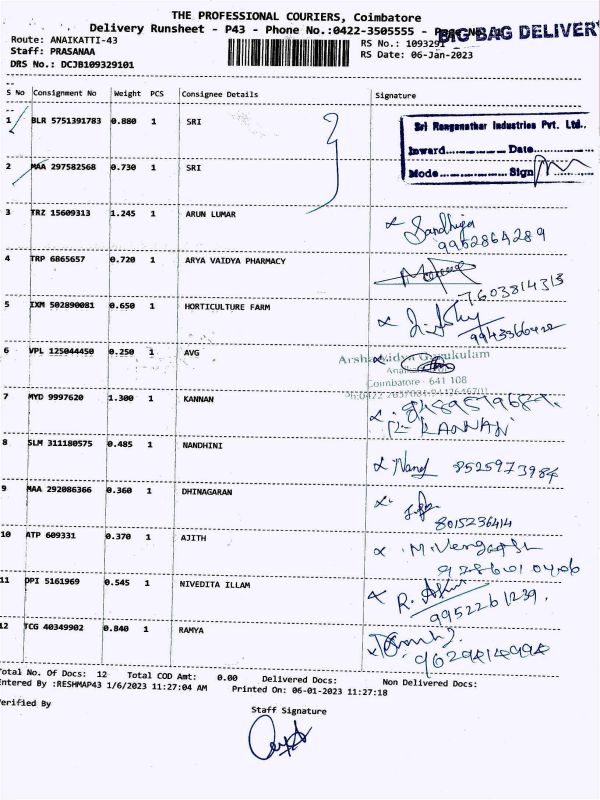 THE PROFESSIONAL COURIERS, Coimbatore
Delivery Runsheet - P43 - Phone No.:0422-3505555 -
BIG BAG DELIVERY
Route: ANAIKATTI-43
RS No.: 1093291
Staff: PRASANAA
RS Date: 06-Jan-2023
DRS No.: DCJB109329101
S No Consignment No Weight PCS Consignee Details Signature
1 BLR 5751391783 0.880 1 SRI
Sri Ranganathar Industries Pvt. Ltd.,
Inward.............. Date..............
Mode.............. Sign..............
2 MAA 297582568 0.730 1 SRI
3 TRZ 15609313 1.245 1 ARUN LUMAR
Sandhiya
9952864289
4 TRP 6865657 0.720 1 ARYA VAIDYA PHARMACY
7603814313
5 IXM 502890081 0.650 1 HORTICULTURE FARM
6 VPL 125044450 0.250 1 AVG
Arsha Vidya Gurukulam
Coimbatore - 641 108
7 MYD 9997620 1.300 1 KANNAN
KANNAN
8 SLM 311180575 0.485 1 NANDHINI
8525973984
9 MAA 292086366 0.360 1 DHINAGARAN
8015236414
10 ATP 609331 0.370 1 AJITH
11 DPI 5161969 0.545 1 NIVEDITA ILLAM
9952261239.
12 TCG 40349902 0.840 1 RAMYA
9629414994
Total No. Of Docs: 12 Total COD Amt: 0.00 Delivered Docs: Non Delivered Docs:
Entered By :RESHMAP43 1/6/2023 11:27:04 AM Printed On: 06-01-2023 11:27:18
Verified By
Staff Signature